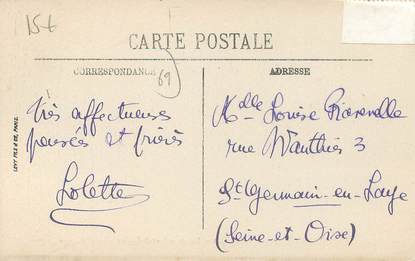 15t
CARTE POSTALE
CORRESPONDANCE
69
ADRESSE
Très affectueuses
pensées et
Lolette
Mdlle Louise
rue Wauthier 3
St Germain-en-Laye
(Seine-et-Oise)
LEVY FILS & CIE, PARIS.